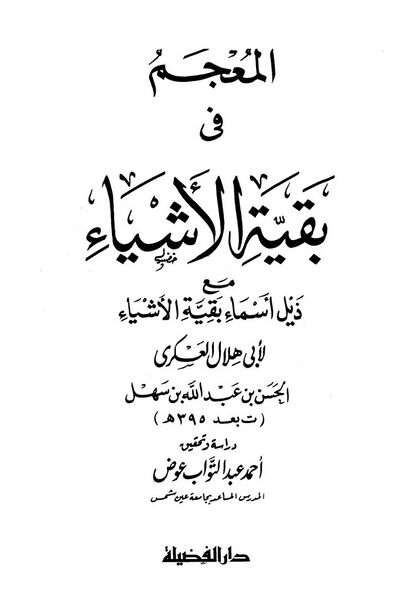 المُعْجَمُ
فى
بَقيَّةِ الأَشْيَاءِ
مع
ذَيْل أسْمَاءِ بَقيَّة الأشْيَاءِ
لأبى هلال العسكرى
الحَسَن بن عَبد الله بن سَهْل
(ت بعد ٣٩٥ هـ)
دراسة وتحقيق
أحمد عبد التواب عوض
المدرس المساعد بجامعة عين شمس
دار الفضيلة